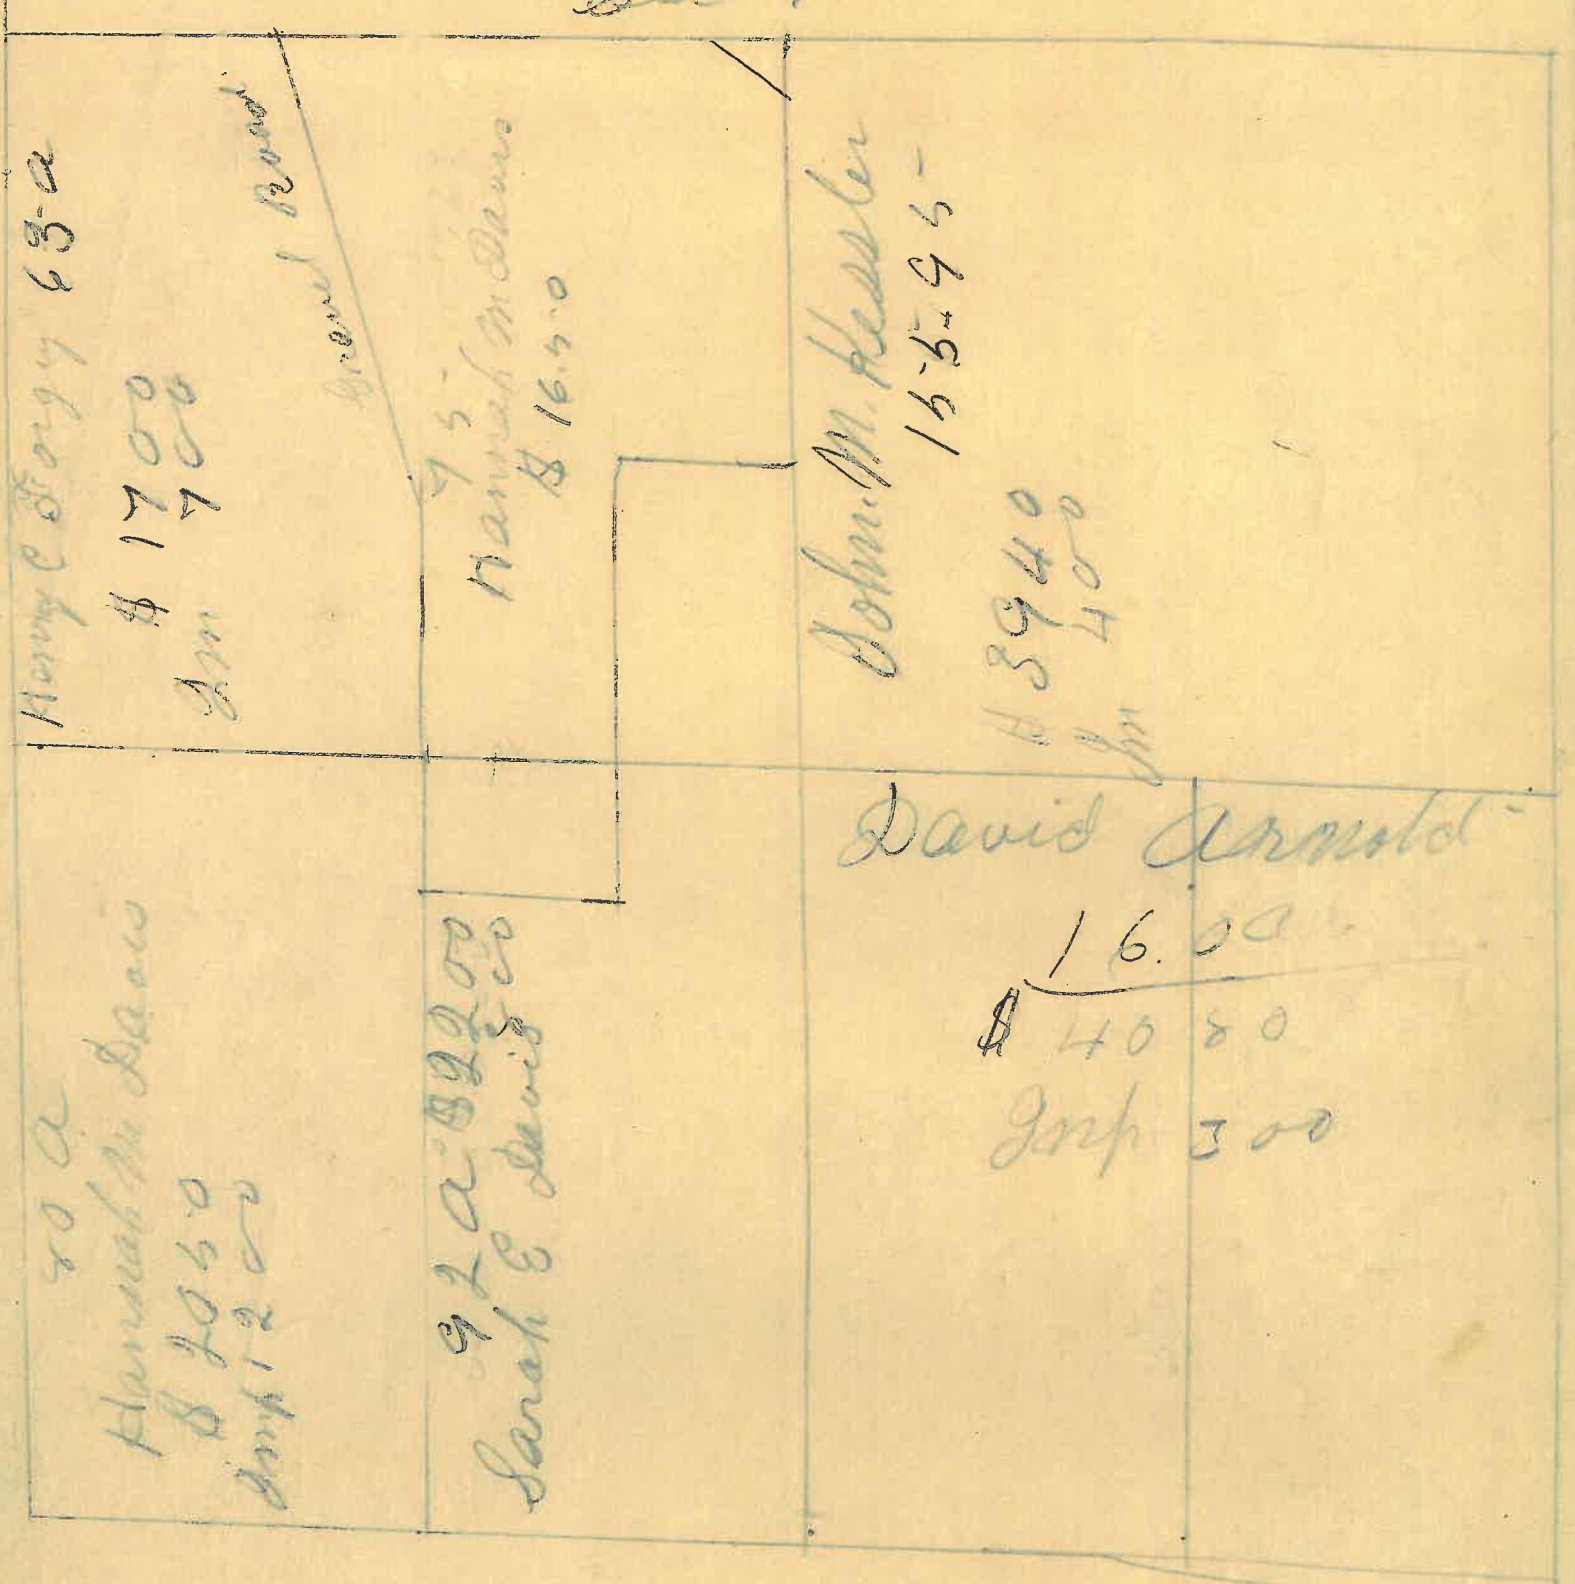 Henry C Forgy 63 a
$ 1700
Im 700
Gravel Road
75
Hannah M Davis
$ 1650
John M. Kessler
155.95
$ 3940
Im 400
80 a
Hannah M Davis
$ 2050
Imp 1200
92 a $2200
Sarah E Davis
David Arnold
16.00
$ 4080
Imp 300